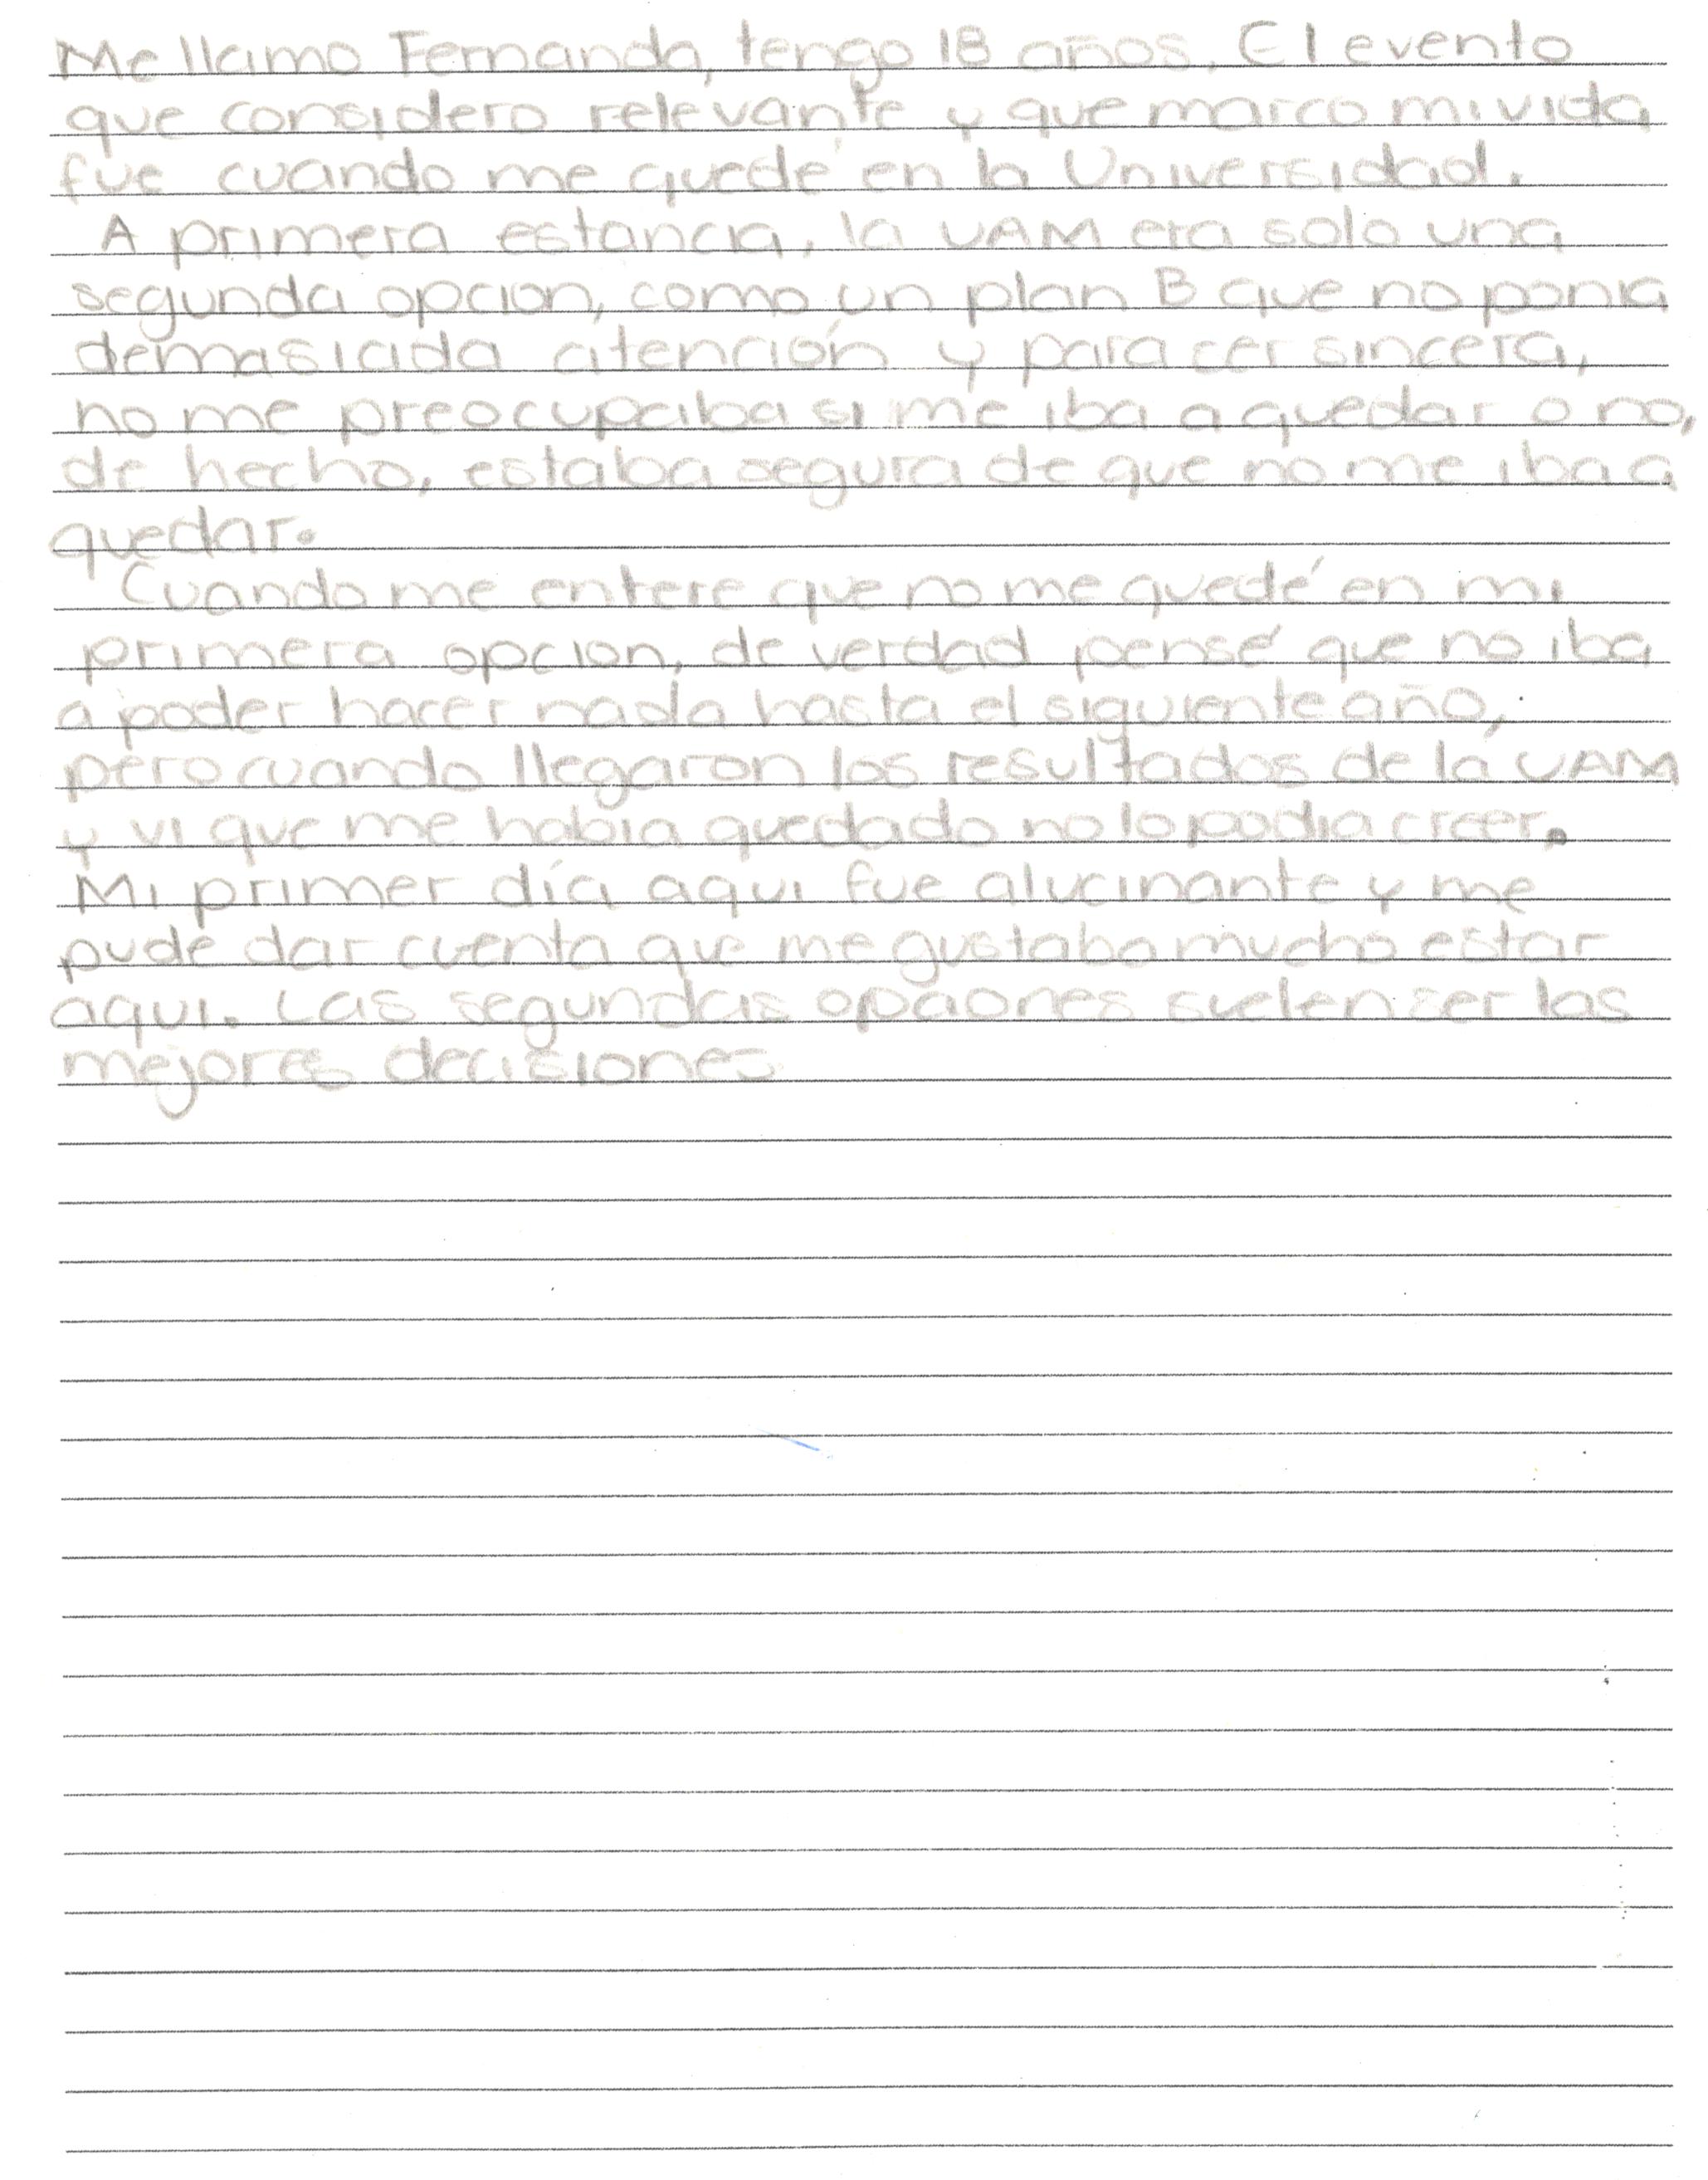 Me llamo Fernanda, tengo 18 años. El evento
que considero relevante y que marco mi vida
fue cuando me quedé en la Universidad.
A primera estancia, la UAM era solo una
segunda opcion, como un plan B que no ponia
demasiada atención y para cer sincera,
no me preocupaba si me iba a quedar o no,
de hecho, estaba segura de que no me iba a
quedar.
Cuando me entere que no me quedé en mi
primera opcion, de verdad pensé que no iba
a poder hacer nada hasta el siguiente año,
pero cuando llegaron los resultados de la UAM
y vi que me habia quedado no lo podia creer.
Mi primer día aqui fue alucinante y me
pude dar cuenta que me gustaba mucho estar
aqui. Las segundas opciones suelen ser las
mejores decisiones